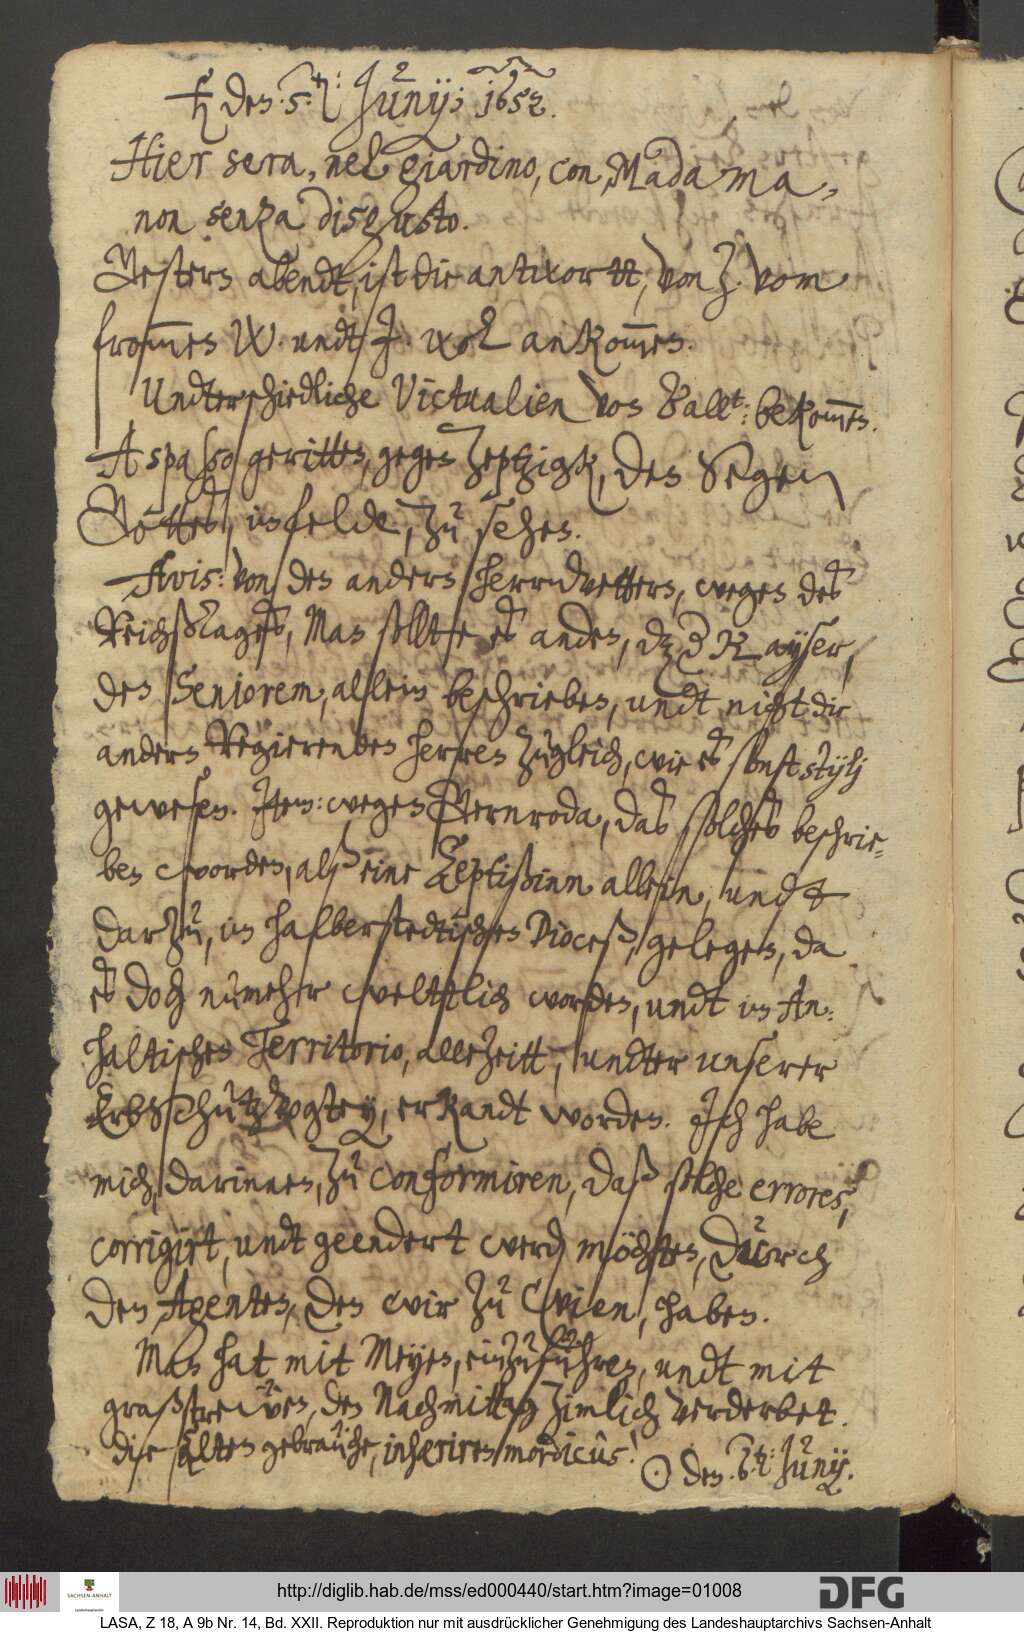 ♄ den 5.ten: Junij: 1652.
Hier sera, nel giardino, con Madama,
non senza disgusto.
Gestern abendt, ist die antwortt, von Z. vom
frommen W. undt J. wol ankommen.
Undterschiedliche Victualien von Ball.t: bekommen.
A spasso geritten, gegen Zeptzigk, den Segen
Gottes, im felde, zu sehen.
Avis: von den andern herrn vettern, wegen des
Reichßtages, Man sollte es anden, dz der Kayser,
den Seniorem, allein beschrieben, undt nicht die
andern Regierenden herren zugleich, wie es sonst stylj
gewesen. Jtem: wegen Gernroda, das solches beschrie-
ben worden, alß eine Æptißinn allein, undt
darzu, im halberstedtischen Dioceß, gelegen, da
es doch numehr weltlich worden, undt im An-
haltischen Territorio, allezeitt, undter unserer
ErbSchutzVogtey, erkandt worden. Jch habe
mich, darinnen, zu conformiren, daß solche errores,
corrigirt, undt geendert werden möchten, durch
den Agenten, den wir zu Wien, haben.
Man hat mit Meyen, einzuführen, undt mit
graßstrewen, den Nachmittag zimlich verderbet.
die Alten gebräuche, inhæriren mordicus!
⊙ den 6.ten: Junij.
http://diglib.hab.de/mss/ed000440/start.htm?image=01008
SACHSEN-ANHALT
DFG
LASA, Z 18, A 9b Nr. 14, Bd. XXII. Reproduktion nur mit ausdrücklicher Genehmigung des Landeshauptarchivs Sachsen-Anhalt